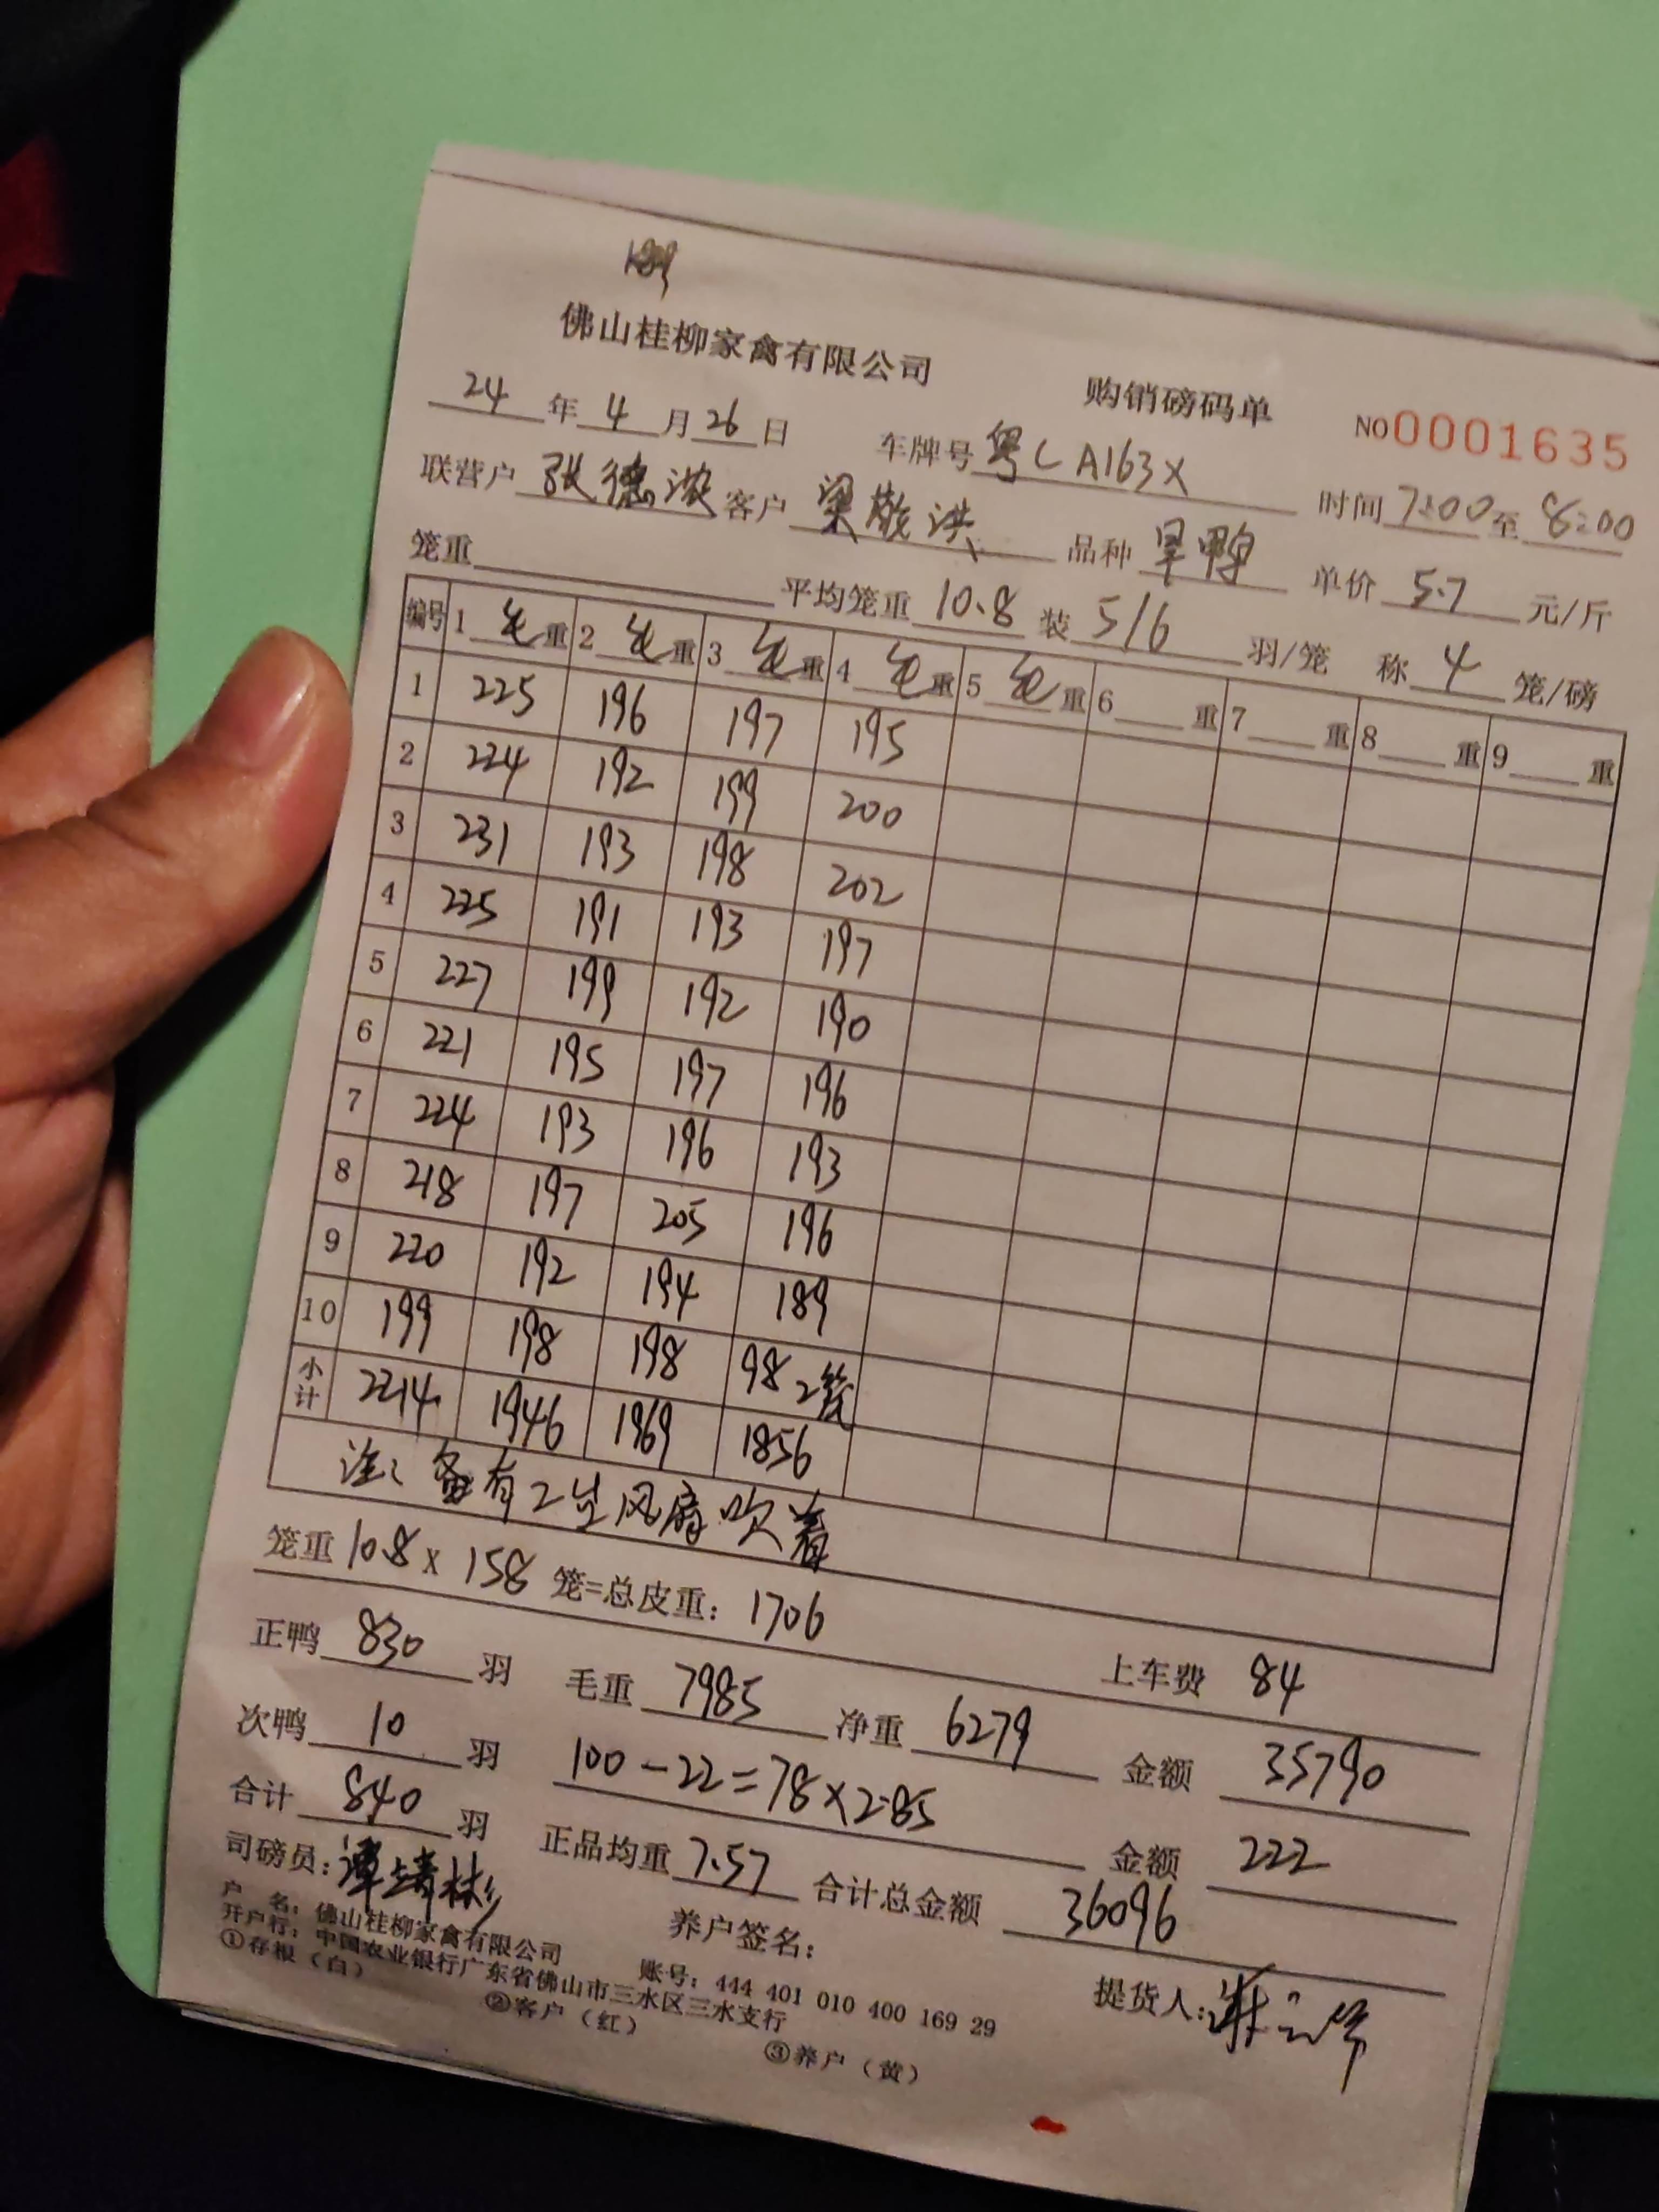 佛山桂柳家禽有限公司 购销磅码单 NO 0001635
24年4月26日 车牌号 粤CA163X 时间 7:00至8:00
联营户 张德浓 客户 梁敬洪 品种 旱鸭 单价 5.7 元/斤
笼重 平均笼重 10.8 装 5/6 羽/笼 称 4 笼/磅
编号 1 毛重 2 毛重 3 毛重 4 毛重 5 毛重 6 重 7 重 8 重 9 重
1 225 196 197 195
2 224 192 199 200
3 231 193 198 202
4 225 191 193 197
5 227 199 192 190
6 221 195 197 196
7 224 193 196 193
8 218 197 205 196
9 220 192 194 189
10 199 198 198 98 2笼
小计 2214 1946 1969 1856
注: 备有2台风扇吹着
笼重 10.8 x 158 笼=总皮重: 1706
上车费 84
正鸭 830 羽 毛重 7985 净重 6279 金额 35790
次鸭 10 羽 100-22=78×2.85 金额 222
合计 840 羽 正品均重 7.57 合计总金额 36096
司磅员: 谭靖彬 养户签名: 提货人:
户 名: 佛山桂柳家禽有限公司 账号: 444 401 010 400 169 29
开户行: 中国农业银行广东省佛山市三水区三水支行
①存根(白) ②客户(红) ③养户(黄)